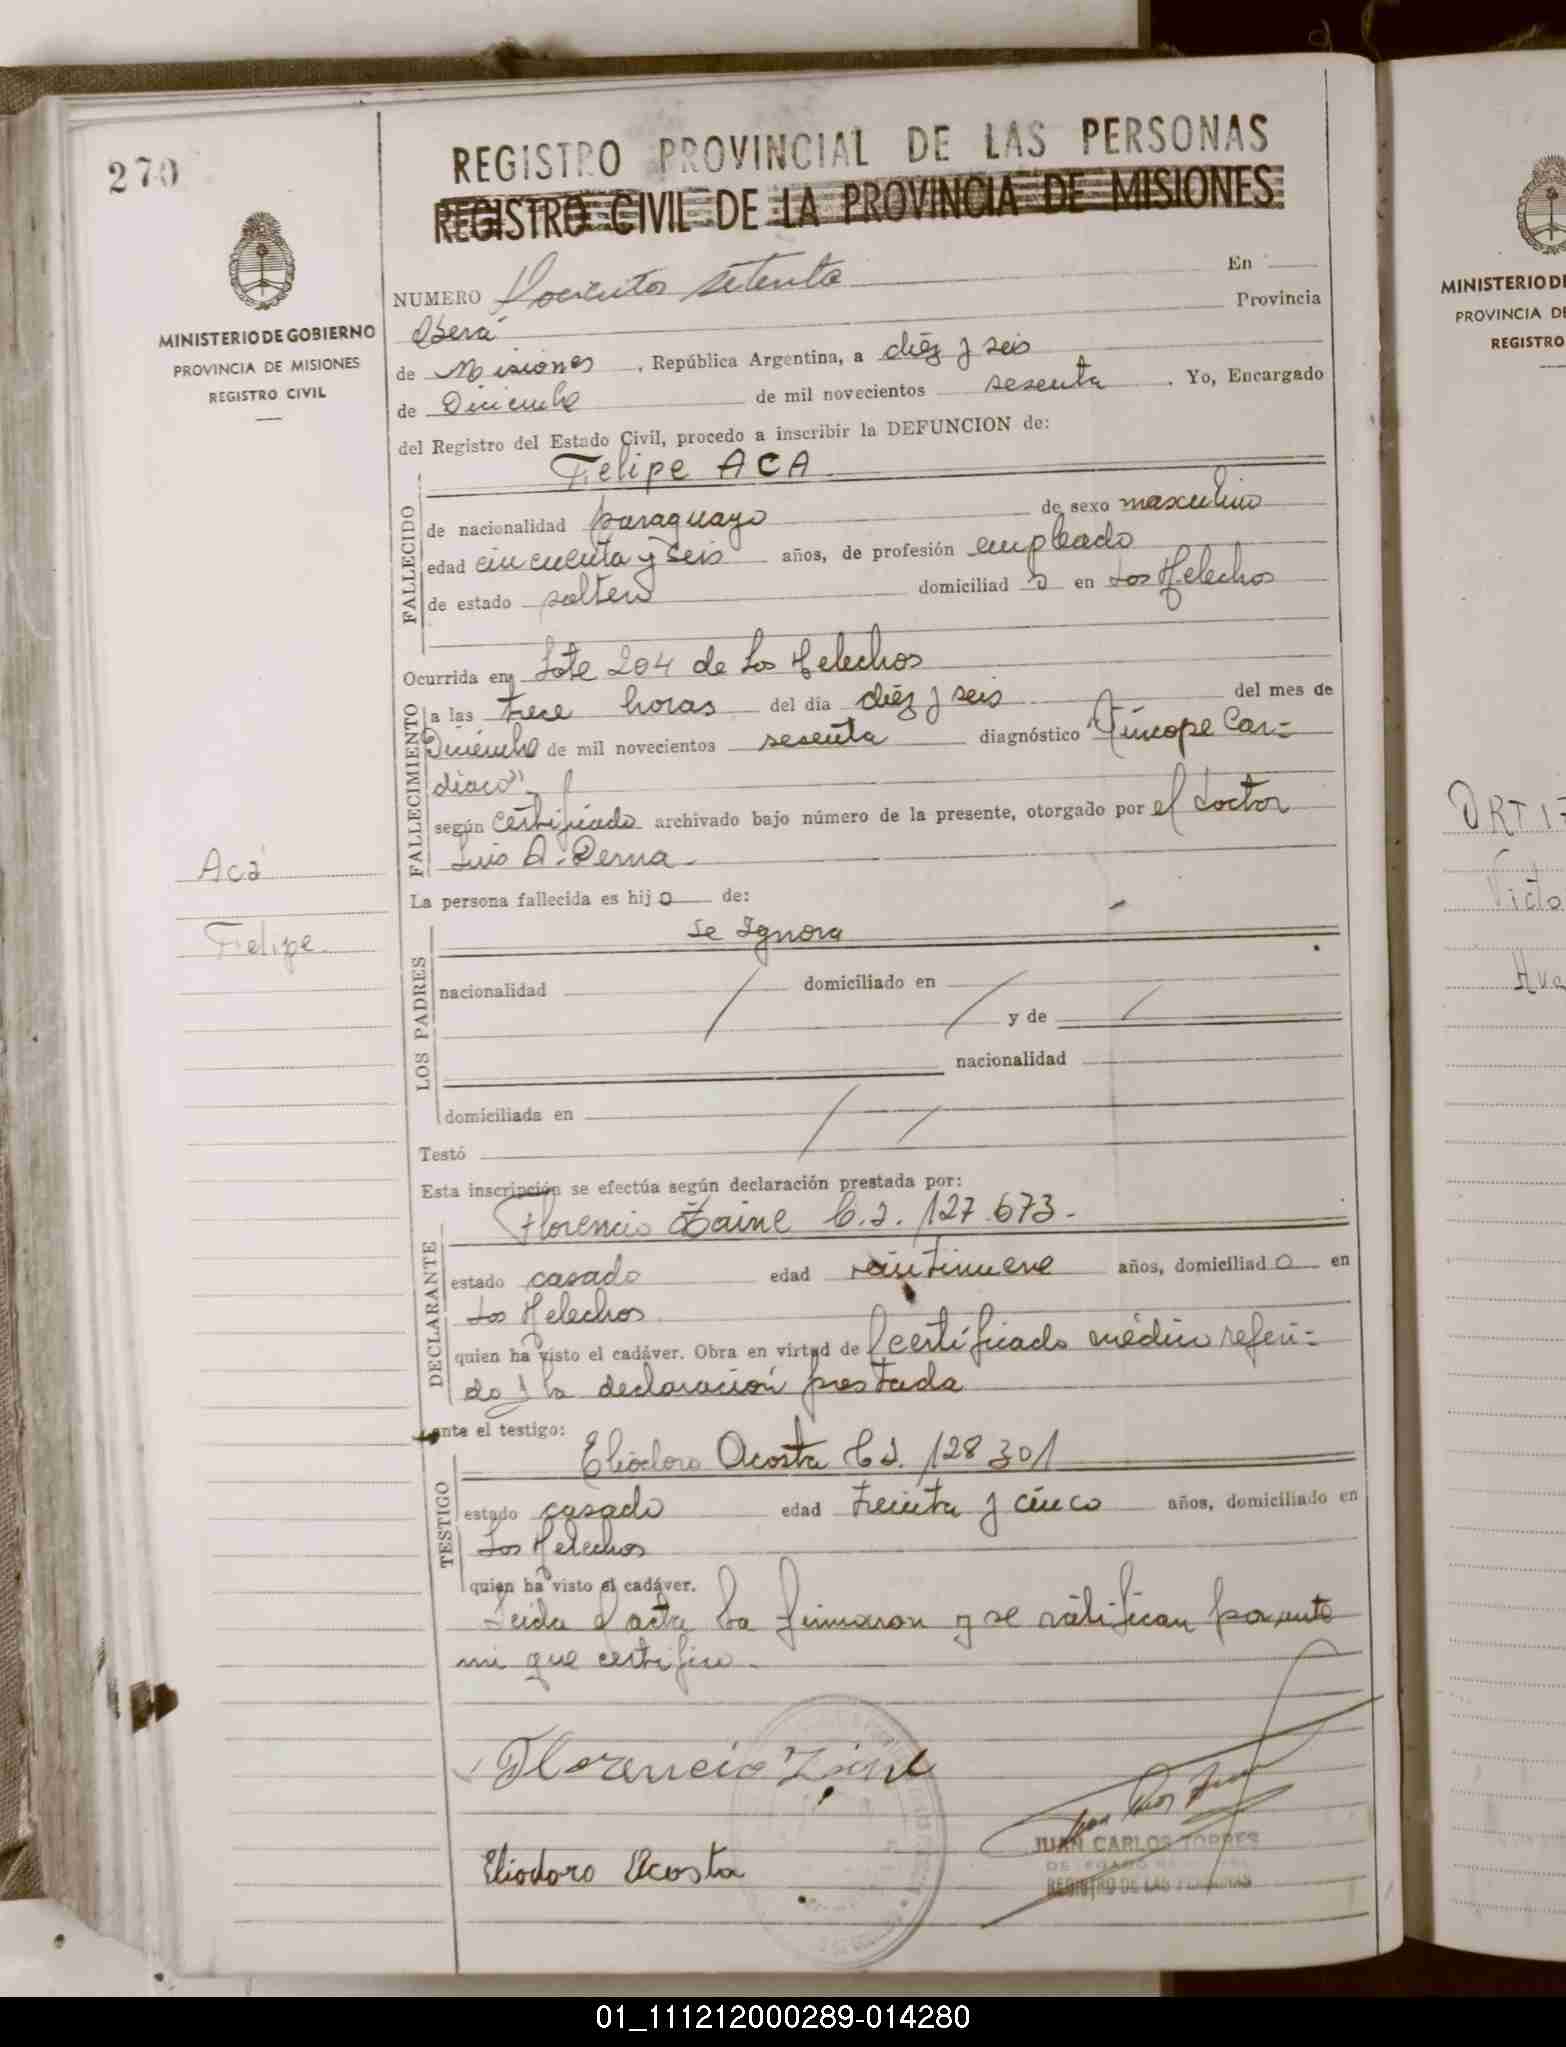 270
REGISTRO PROVINCIAL DE LAS PERSONAS
REGISTRO CIVIL DE LA PROVINCIA DE MISIONES
MINISTERIO DE GOBIERNO
PROVINCIA DE MISIONES
REGISTRO CIVIL
NUMERO Docientos setenta En
Oberá Provincia
de Misiones, República Argentina, a diéz y seis
de Diciembre de mil novecientos sesenta. Yo, Encargado
del Registro del Estado Civil, procedo a inscribir la DEFUNCION de:
Felipe ACA
FALLECIDO
de nacionalidad paraguayo de sexo masculino
edad cincuenta y seis años, de profesión empleado
de estado soltero domiciliad o en Los Helechos
Ocurrida en Lote 204 de Los Helechos
FALLECIMIENTO
a las trece horas del día diéz y seis del mes de
Diciembre de mil novecientos sesenta diagnóstico "Síncope Car=
diaco".
según certificado archivado bajo número de la presente, otorgado por el doctor
Luis A. Derna.
Acá
Felipe
La persona fallecida es hijo de:
Se Ignora
LOS PADRES
nacionalidad domiciliado en
y de
nacionalidad
domiciliada en
Testó
Esta inscripción se efectúa según declaración prestada por:
Florencio Zaine C.I. 127.673.
DECLARANTE
estado casado edad veintinueve años, domiciliado en
Los Helechos
quien ha visto el cadáver. Obra en virtud de certificado médico referi=
do y la declaración prestada
ante el testigo:
Eliodoro Acosta C.I. 128301
TESTIGO
estado casado edad treinta y cinco años, domiciliado en
Los Helechos
quien ha visto el cadáver.
Leida el acta la firmaron y se ratifican por ante
mi que certifico.
Florencio Zaine
Eliodoro Acosta
JUAN CARLOS TORRES
REGISTRO DE LAS PERSONAS
MINISTERIO DE
PROVINCIA DE
REGISTRO
ORTIZ
Victo
Hug
01_111212000289-014280